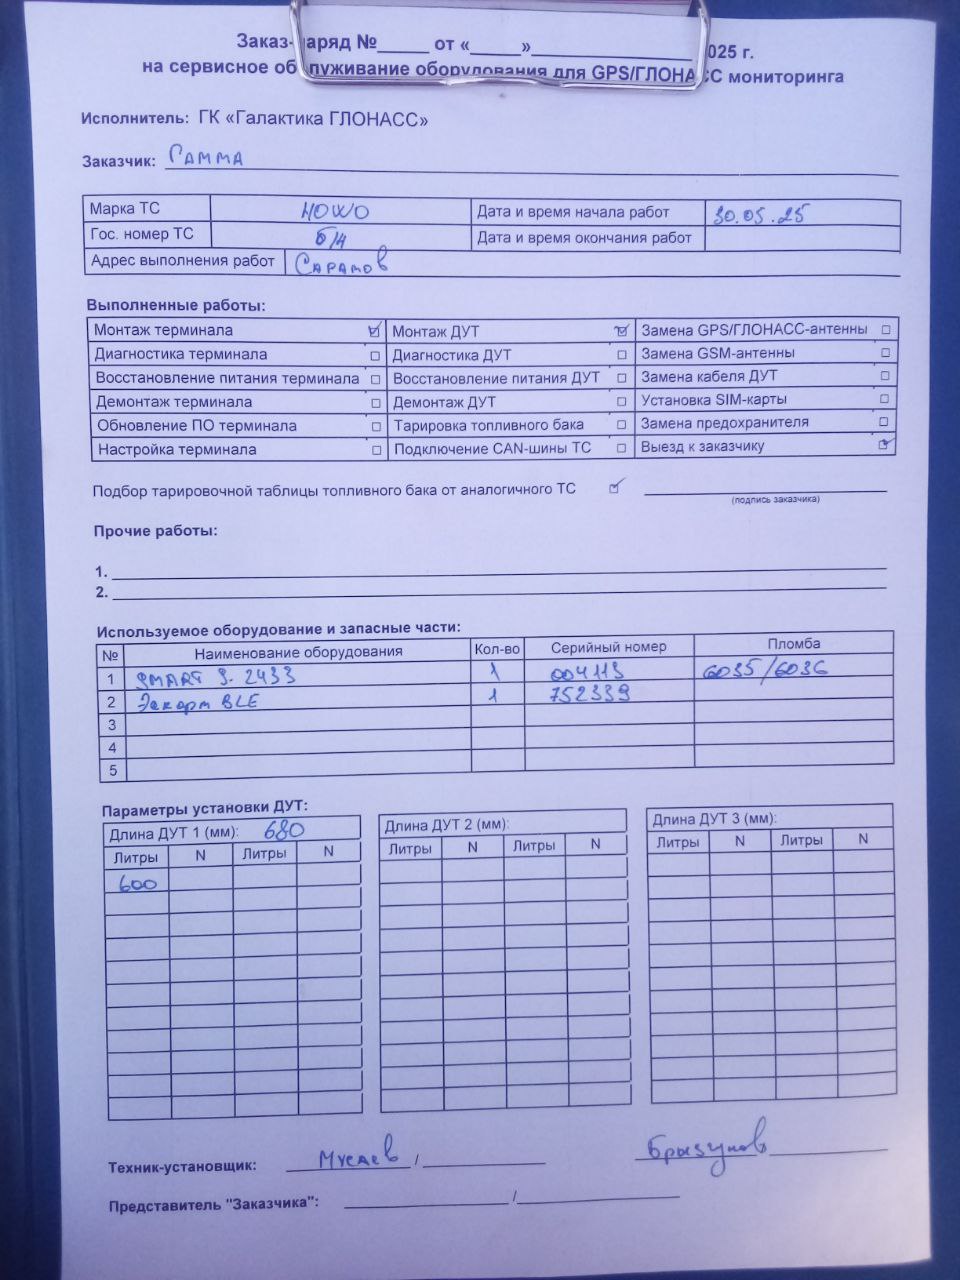 Заказ-наряд №_____ от «_____»________________ 2025 г.
на сервисное обслуживание оборудования для GPS/ГЛОНАСС мониторинга
Исполнитель: ГК «Галактика ГЛОНАСС»
Заказчик: Гамма
Марка ТС HOWO Дата и время начала работ 30.05.25
Гос. номер ТС б/н Дата и время окончания работ
Адрес выполнения работ Саратов
Выполненные работы:
Монтаж терминала ☑ Монтаж ДУТ ☑ Замена GPS/ГЛОНАСС-антенны ☐
Диагностика терминала ☐ Диагностика ДУТ ☐ Замена GSM-антенны ☐
Восстановление питания терминала ☐ Восстановление питания ДУТ ☐ Замена кабеля ДУТ ☐
Демонтаж терминала ☐ Демонтаж ДУТ ☐ Установка SIM-карты ☐
Обновление ПО терминала ☐ Тарировка топливного бака ☐ Замена предохранителя ☐
Настройка терминала ☐ Подключение CAN-шины ТС ☐ Выезд к заказчику ☑
Подбор тарировочной таблицы топливного бака от аналогичного ТС ☑
(подпись заказчика)
Прочие работы:
1.
2.
Используемое оборудование и запасные части:
№ Наименование оборудования Кол-во Серийный номер Пломба
1 SMART S-2433 1 004113 6035/6036
2 Эскорт BLE 1 752339
3
4
5
Параметры установки ДУТ:
Длина ДУТ 1 (мм): 680 Длина ДУТ 2 (мм): Длина ДУТ 3 (мм):
Литры N Литры N Литры N Литры N Литры N Литры N
600
Техник-установщик: Мусаев / Брызгунов
Представитель "Заказчика": /